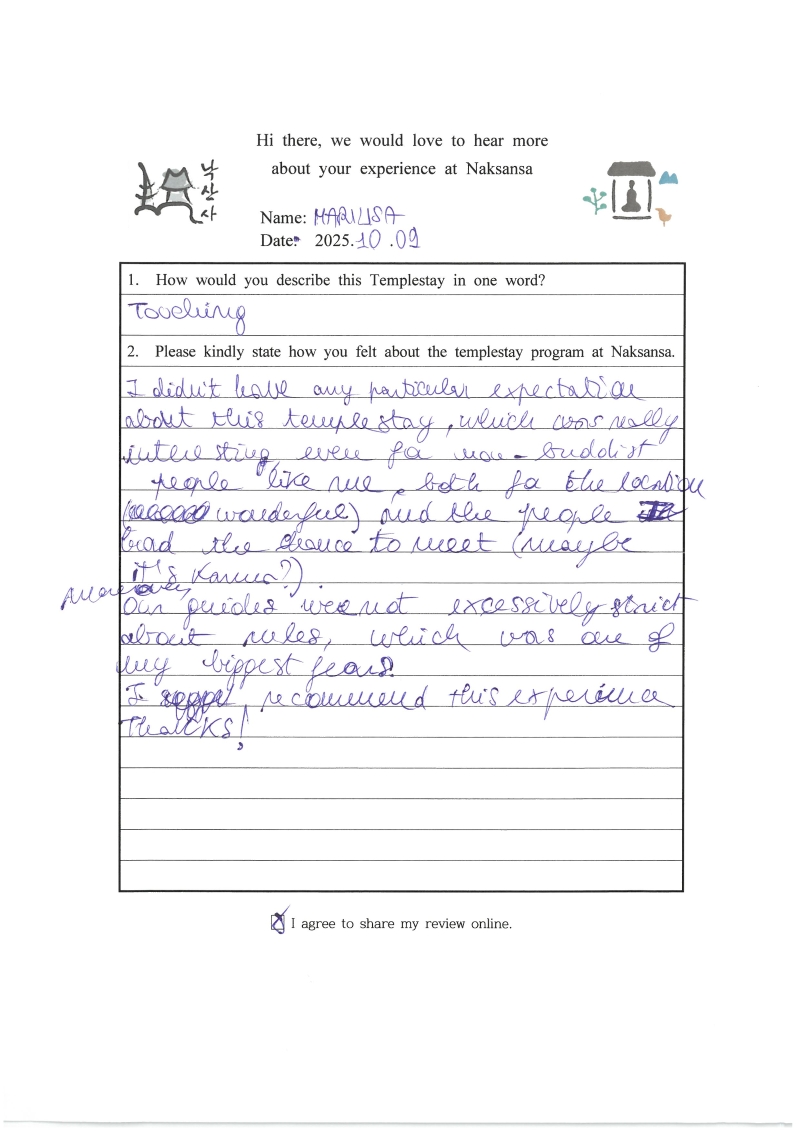 Hi there, we would love to hear more
about your experience at Naksansa
낙산사
Name: MARILISA
Date: 2025.10.09
1. How would you describe this Templestay in one word?
Touching
2. Please kindly state how you felt about the templestay program at Naksansa.
I didn't have any particular expectation
about this temple stay, which was really
interesting even for non-buddist
people like me, both for the location
(wonderful) and the people I
had the chance to meet (maybe
it's Karma?).
Moreover,
Our guides were not excessively strict
about rules, which was one of
my biggest fears.
I recommend this experience
Thanks!
I agree to share my review online.